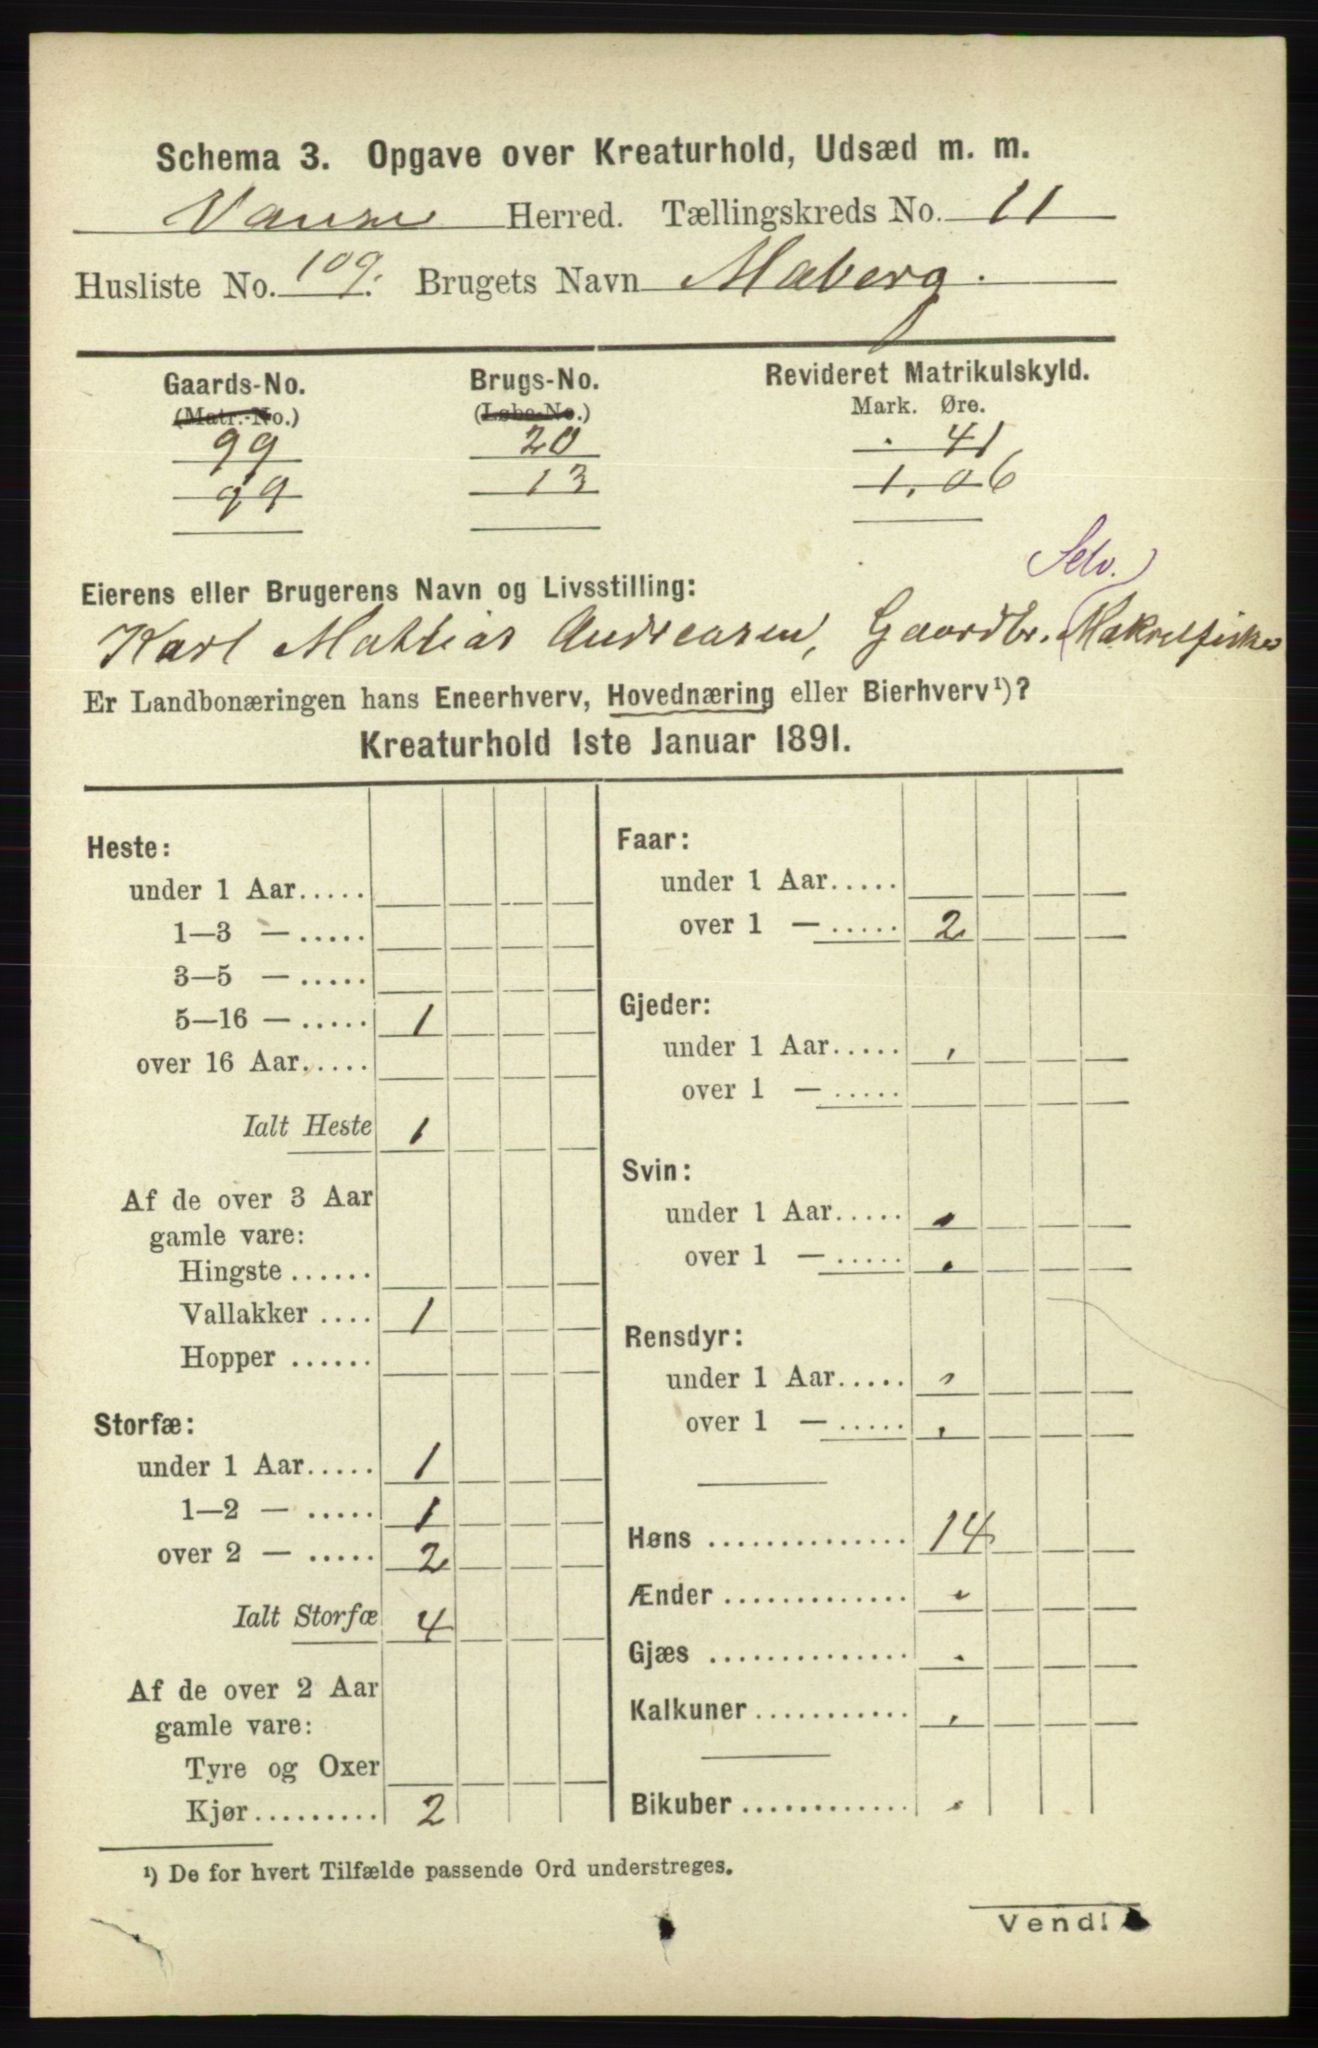 Schema 3. Opgave over Kreaturhold, Udsæd m. m.
Vanse Herred. Tællingskreds No. 11
Husliste No. 109. Brugets Navn Maberg.
Gaards-No. Brugs-No. Revideret Matrikulskyld.
(Matr.-No.) (Løbe-No.) Mark. Øre.
99 20 . 41
99 13 1,06
Selv.
Eierens eller Brugerens Navn og Livsstilling:
Karl Mathias Andreasen, Gaardbr. Makrelfisker
Er Landbonæringen hans Eneerhverv, Hovednæring eller Bierhverv¹)?
Kreaturhold 1ste Januar 1891.
Heste:
under 1 Aar.....
1—3 — .....
3—5 — .....
5—16 — ..... 1
over 16 Aar.....
Ialt Heste 1
Af de over 3 Aar
gamle vare:
Hingste ......
Vallakker .... 1
Hopper ......
Storfæ:
under 1 Aar..... 1
1—2 — ..... 1
over 2 — ..... 2
Ialt Storfæ 4
Af de over 2 Aar
gamle vare:
Tyre og Oxer
Kjør......... 2
Faar:
under 1 Aar.....
over 1 — ..... 2
Gjeder:
under 1 Aar..... ,
over 1 — .....
Svin:
under 1 Aar..... .
over 1 — ..... .
Rensdyr:
under 1 Aar..... ,
over 1 — ..... .
Høns .............. 14
Ænder ............. .
Gjæs .............. .
Kalkuner ........... ,
Bikuber ............ .
¹) De for hvert Tilfælde passende Ord understreges.
Vend!